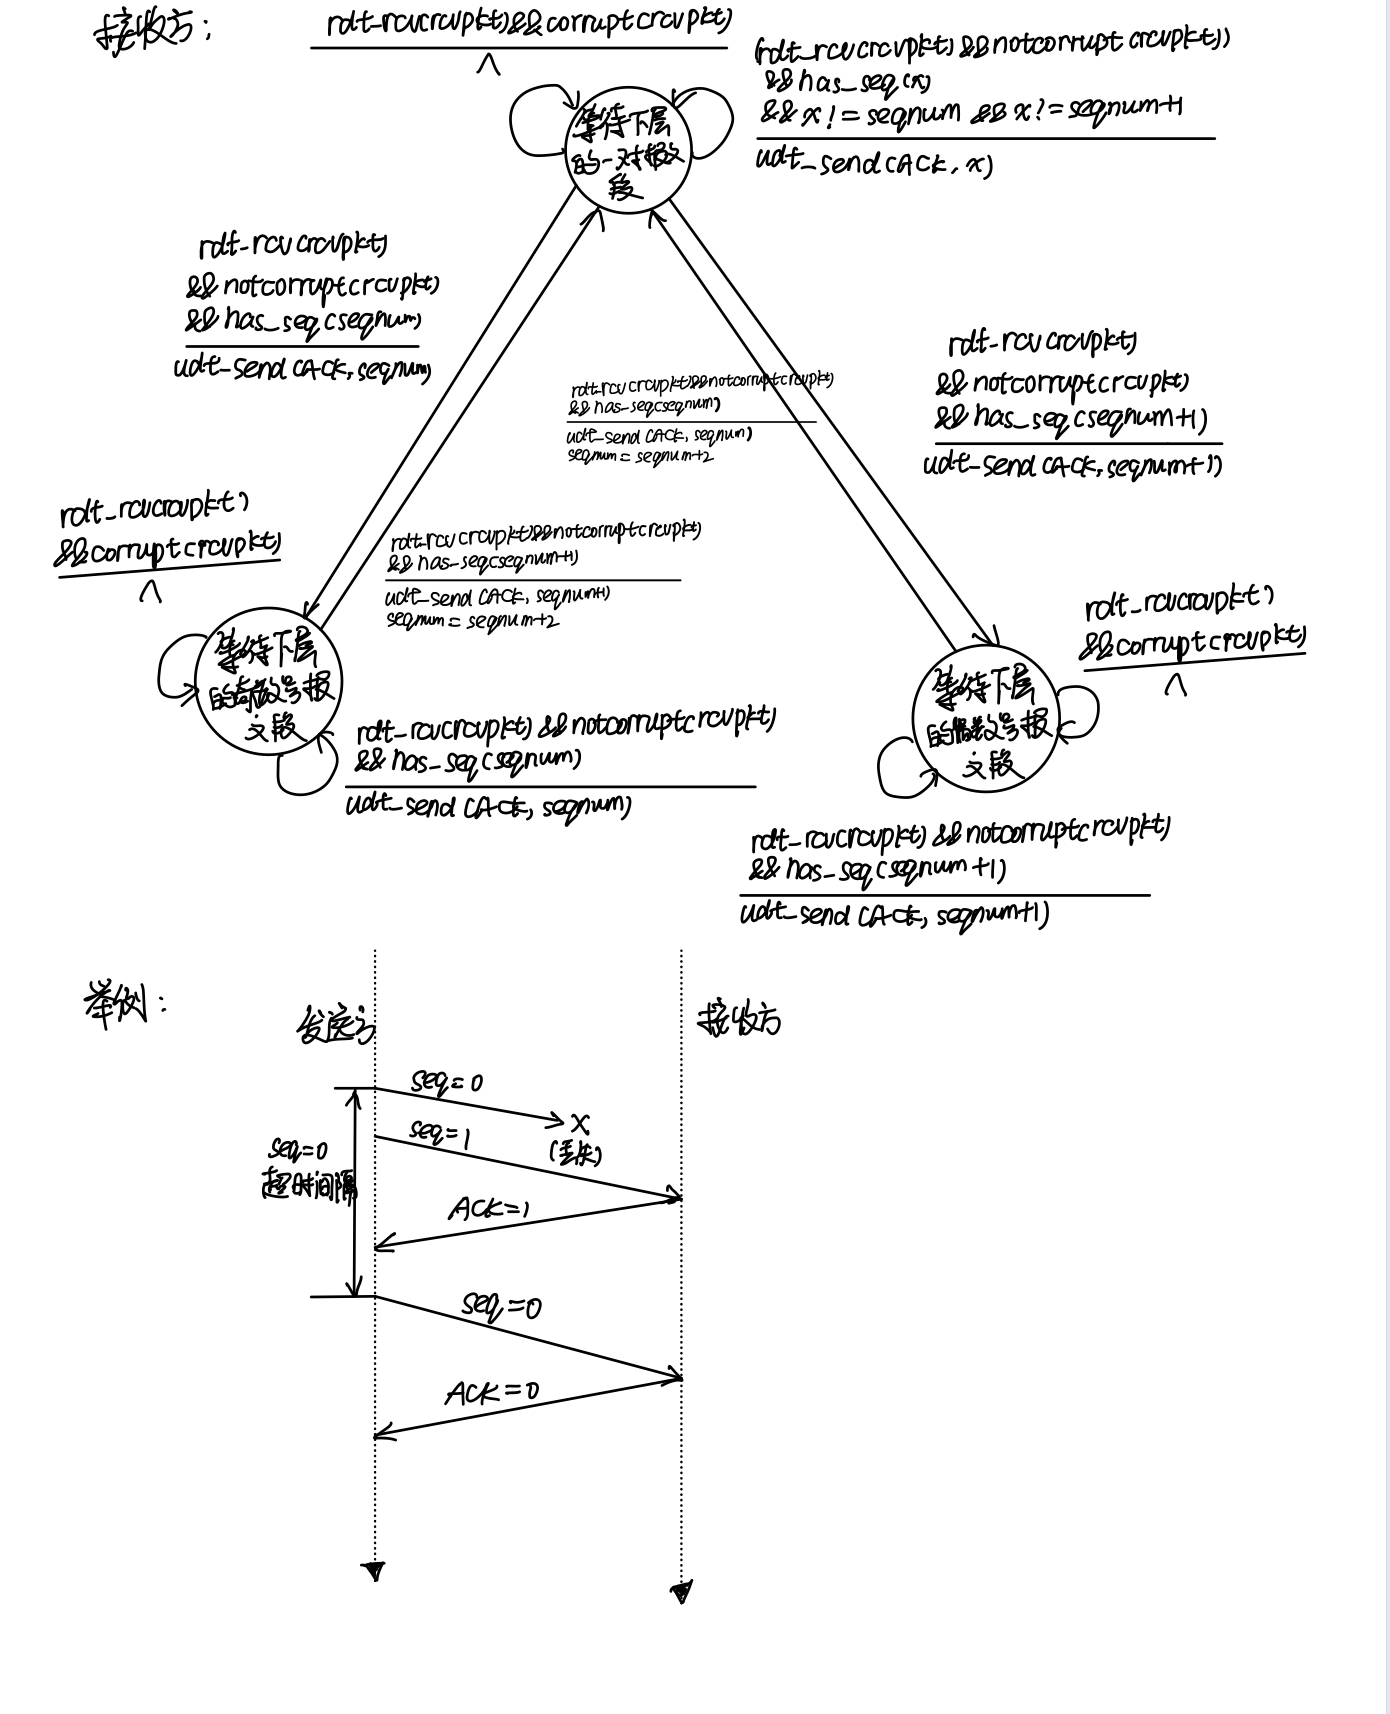 接收方：
rdt_rcv(rcvpkt)&&corrupt(rcvpkt)
Λ
(rdt_rcv(rcvpkt)&&notcorrupt(rcvpkt))
&&has_seq(x)
&&x!=seqnum &&x!=seqnum+1
udt_send(ACK,x)
等待下层
的一对报文
段
rdt_rcv(rcvpkt)
&&notcorrupt(rcvpkt)
&&has_seq(seqnum)
udt_send(ACK,seqnum)
rdt_rcv(rcvpkt)
&&notcorrupt(rcvpkt)
&&has_seq(seqnum+1)
udt_send(ACK,seqnum+1)
rdt_rcv(rcvpkt)&&notcorrupt(rcvpkt)
&&has_seq(seqnum)
udt_send(ACK, seqnum)
seqnum = seqnum+2
rdt_rcv(rcvpkt)
&&corrupt(rcvpkt)
Λ
rdt_rcv(rcvpkt)&&notcorrupt(rcvpkt)
&&has_seq(seqnum+1)
udt_send(ACK, seqnum+1)
seqnum = seqnum+2
rdt_rcv(rcvpkt)
&&corrupt(rcvpkt)
Λ
等待下层
的奇数号报
文段
等待下层
的偶数号报
文段
rdt_rcv(rcvpkt)&&notcorrupt(rcvpkt)
&&has_seq(seqnum)
udt_send(ACK, seqnum)
rdt_rcv(rcvpkt)&&notcorrupt(rcvpkt)
&&has_seq(seqnum+1)
udt_send(ACK, seqnum+1)
举例：
发送方
接收方
seq=0
X
(丢失)
seq=1
seq=0
超时间隔
ACK=1
seq=0
ACK=0